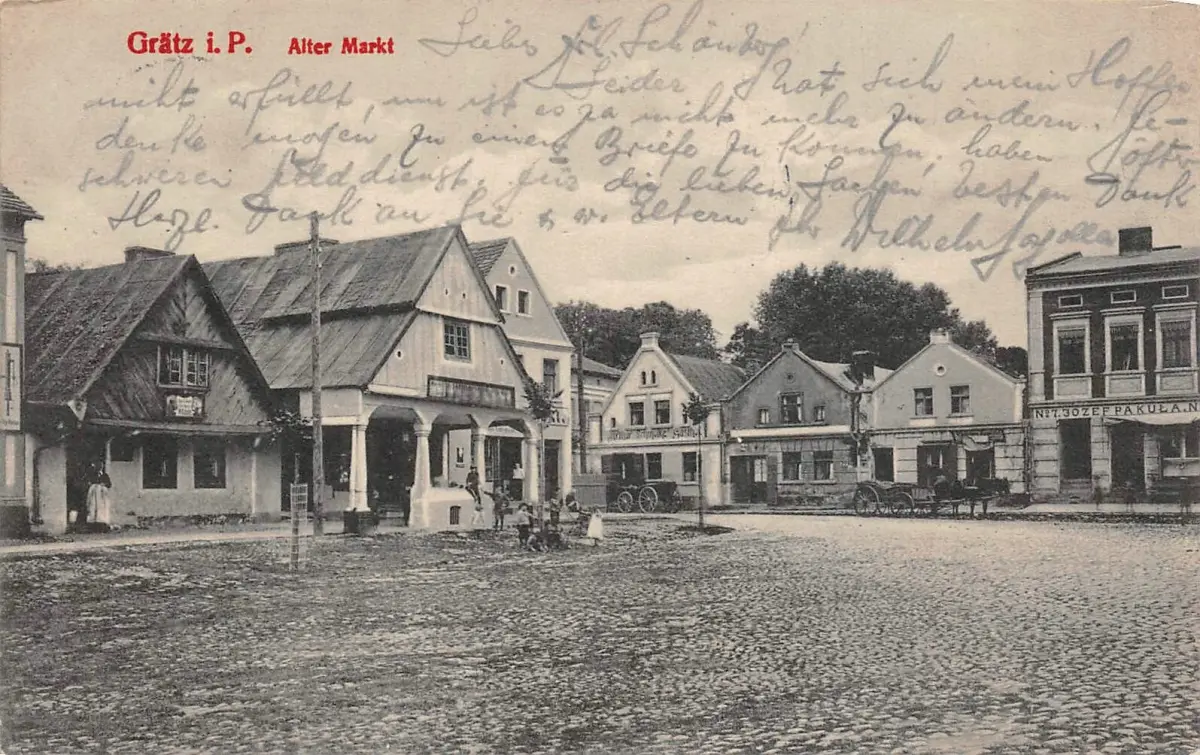 Grätz i. P. Alter Markt
Liebes Frl. Schönberg!
Leider hat sich mein Hoffen
nicht erfüllt, nun ist es ja nicht mehr zu ändern. Ge-
denke morgen zu einem Briefe zu kommen, haben
schweren Felddienst. Für die lieben Sachen besten Dank
Herzl. Dank an Sie u. w. Eltern Ihr Wilhelm
No 7. JOZEF PAKUŁA. N